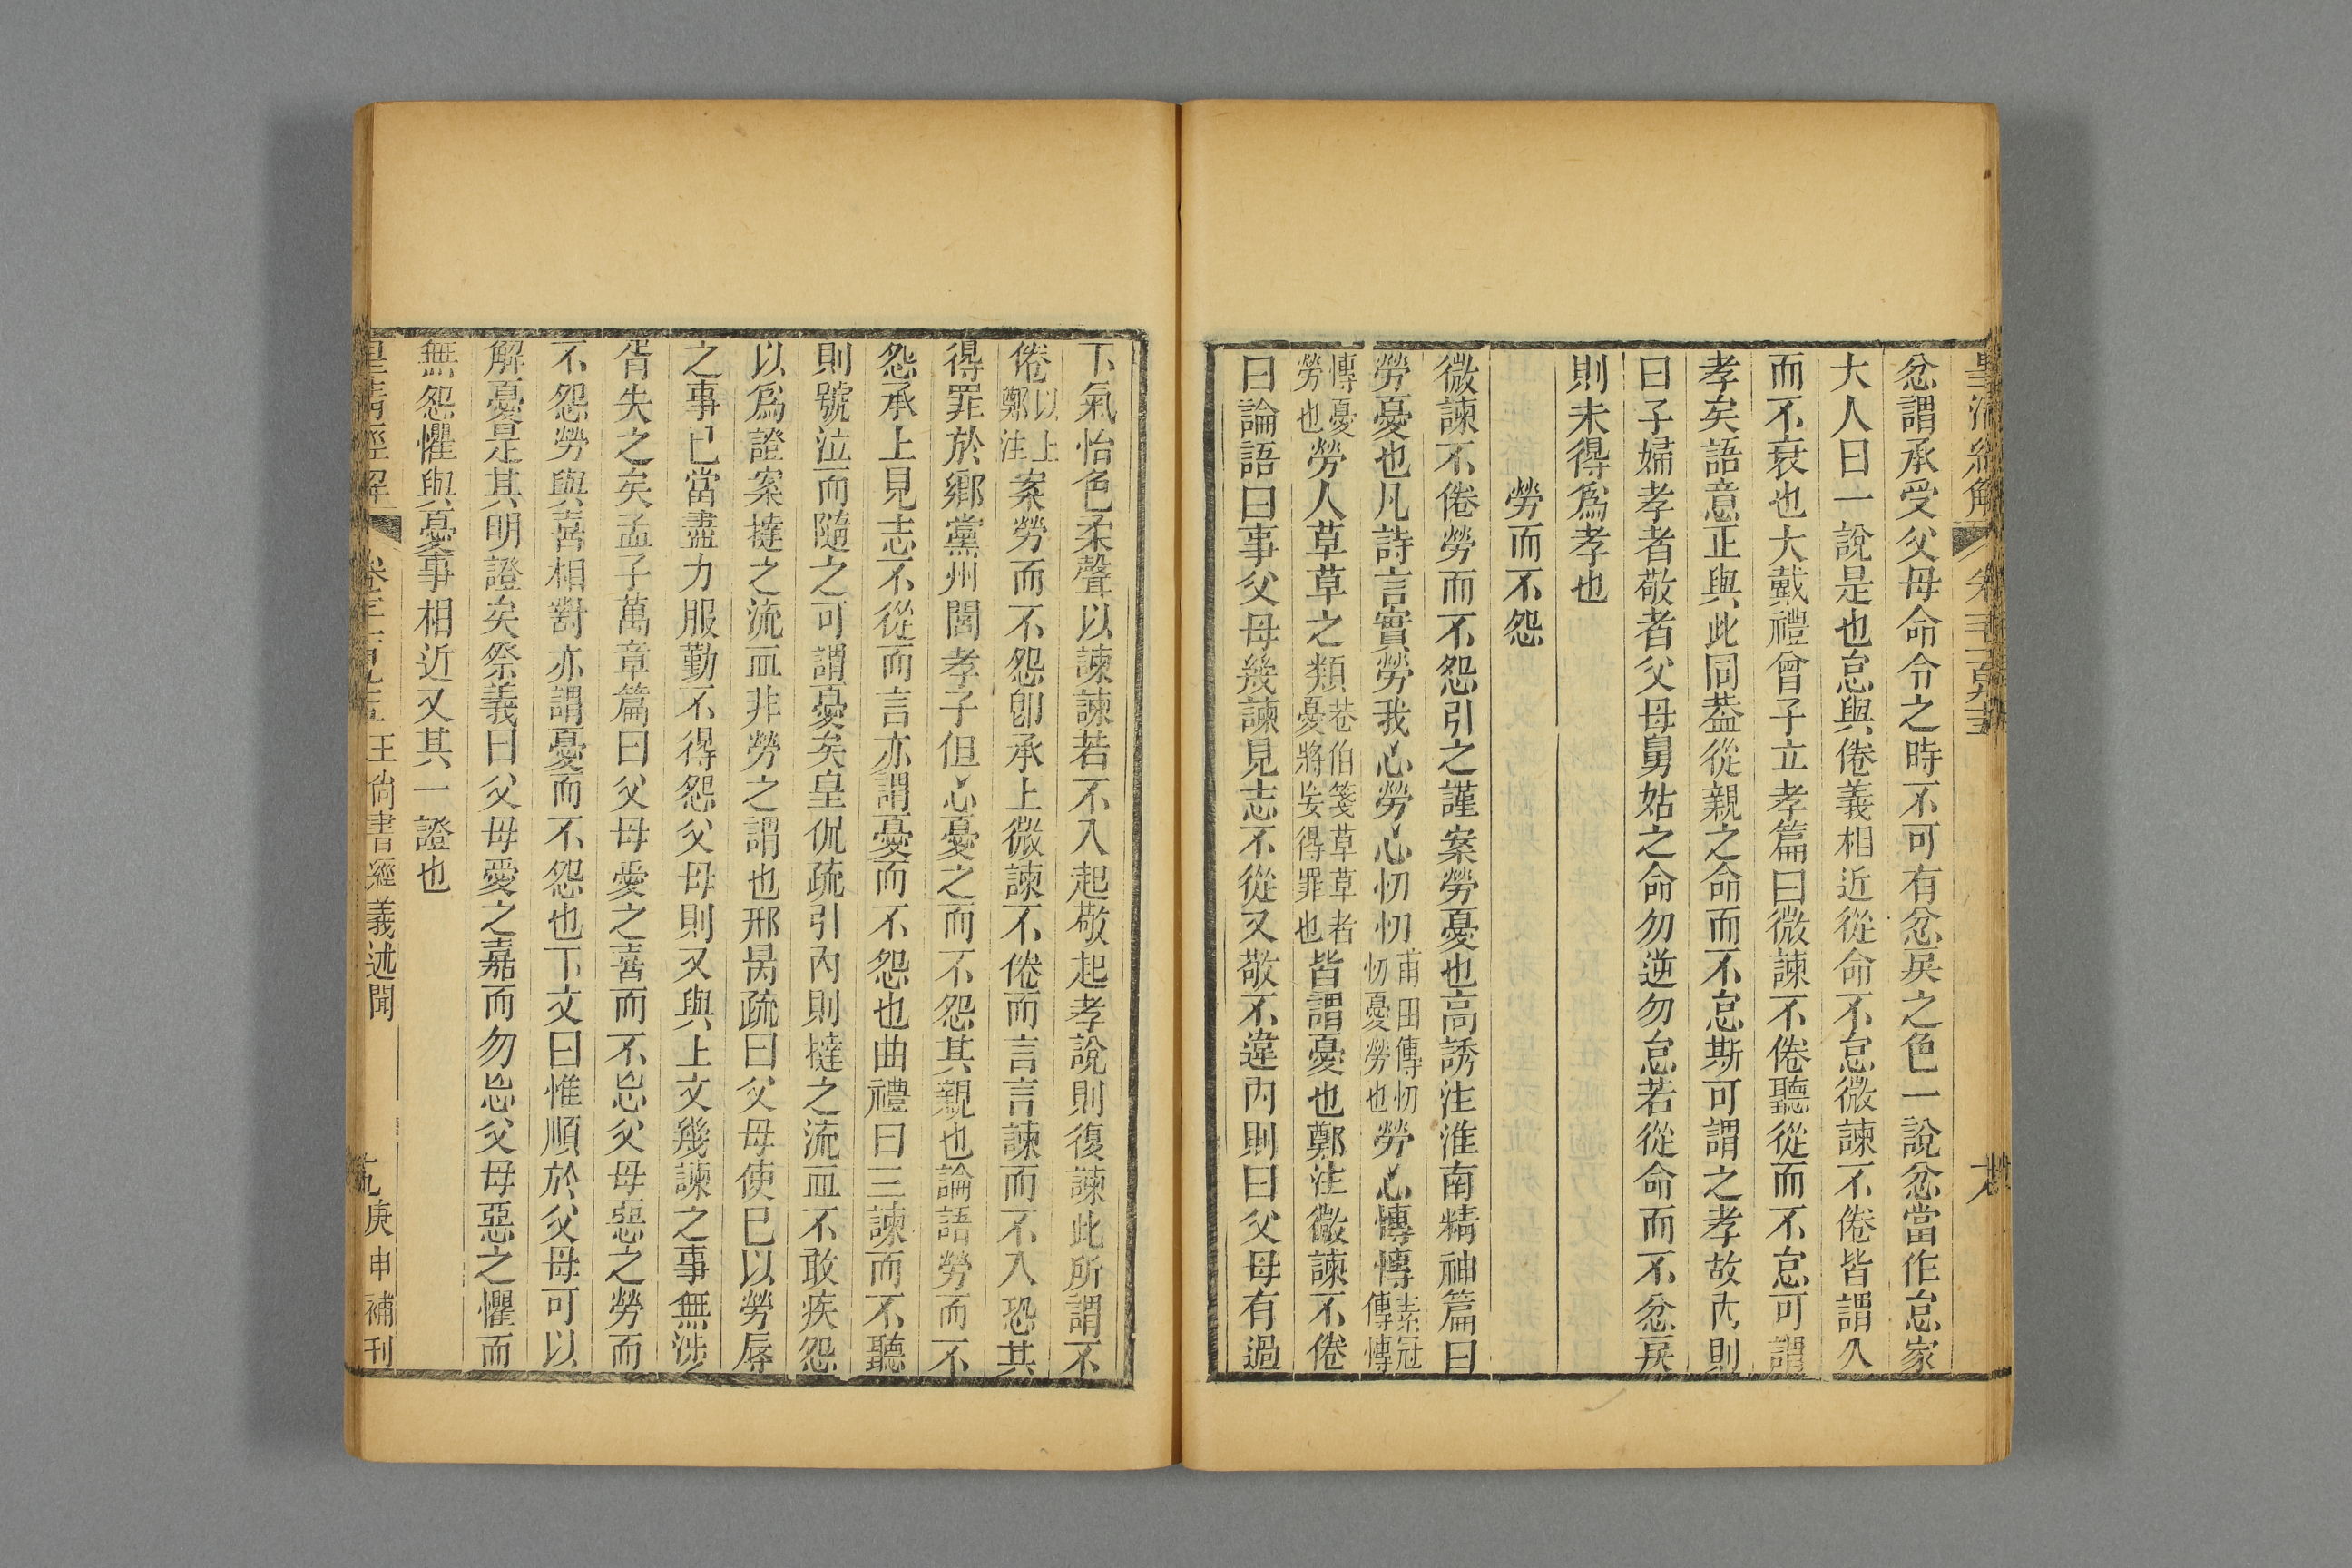 皇清經解 卷千二百九十五 六
忿謂承受父母命令之時不可有忿戾之色一說忿當作怠家
大人曰一說是也怠與倦義相近從命不怠微諫不倦皆謂久
而不衰也大戴禮曾子立孝篇曰微諫不倦聽從而不怠可謂
孝矣語意正與此同葢從親之命而不怠斯可謂之孝故內則
曰子婦孝者敬者父母舅姑之命勿逆勿怠若從命而不忿戾
則未得爲孝也
勞而不怨
微諫不倦勞而不怨引之謹案勞憂也高誘注淮南精神篇曰
勞憂也凡詩言實勞我心勞心忉忉甫田傳忉忉憂勞也勞心慱慱素冠傳慱慱
傳憂勞也勞人草草之類巷伯箋草草者憂將妄得罪也皆謂憂也鄭注微諫不倦
曰論語曰事父母幾諫見志不從又敬不違內則曰父母有過
下氣怡色柔聲以諫諫若不入起敬起孝說則復諫此所謂不
倦以上鄭注案勞而不怨卽承上微諫不倦而言言諫而不入恐其
得罪於鄉黨州閭孝子但心憂之而不怨其親也論語勞而不
怨承上見志不從而言亦謂憂而不怨也曲禮曰三諫而不聽
則號泣而隨之可謂憂矣皇侃疏引內則撻之流血不敢疾怨
以爲證案撻之流血非勞之謂也邢昺疏曰父母使已以勞辱
之事已當盡力服勤不得怨父母則又與上文幾諫之事無涉
胥失之矣孟子萬章篇曰父母愛之喜而不忘父母惡之勞而
不怨勞與喜相對亦謂憂而不怨也下文曰惟順於父母可以
解憂是其明證矣祭義曰父母愛之嘉而勿忘父母惡之懼而
無怨懼與憂事相近又其一證也
皇清經解 王尙書經義述聞 庚申補刊